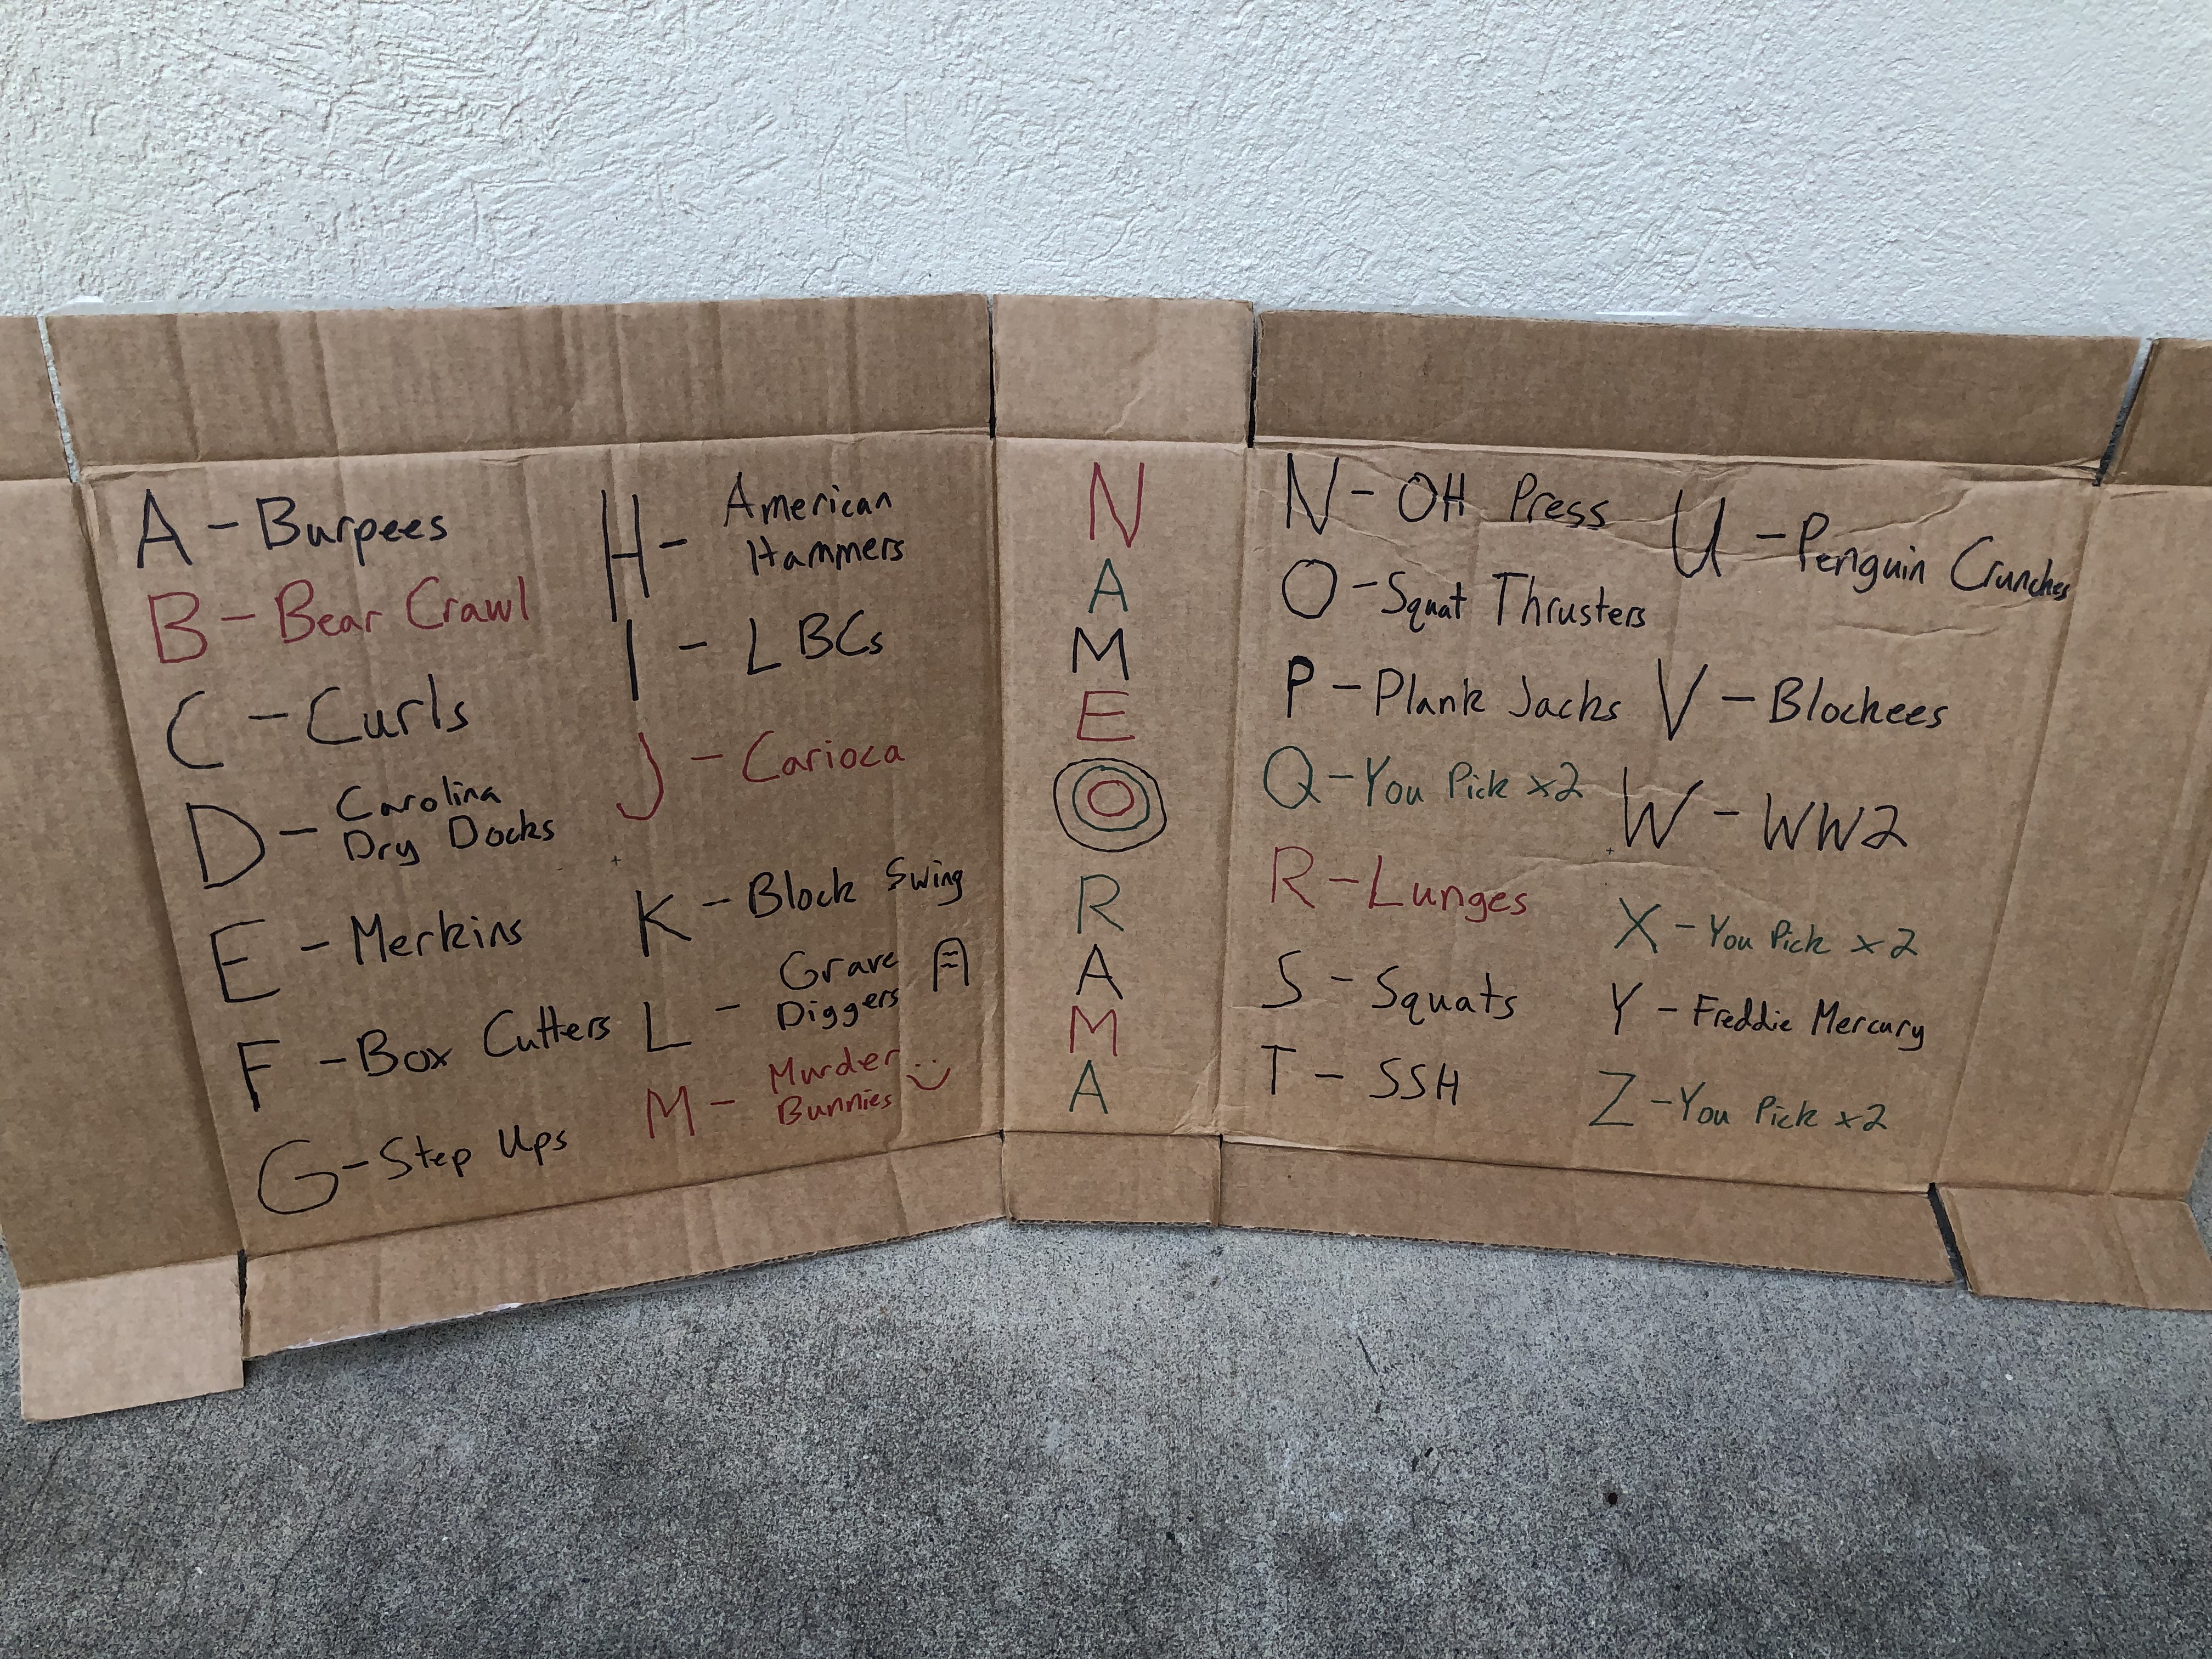 A - Burpees
B - Bear Crawl
C - Curls
D - Carolina
Dry Docks
E - Merkins
F - Box Cutters
G - Step Ups
H - American
Hammers
I - LBCs
J - Carioca
K - Block Swing
L - Grave
Diggers
M - Murder
Bunnies
N
A
M
E
O
R
A
M
A
N - OH Press
O - Squat Thrusters
P - Plank Jacks
Q - You Pick x2
R - Lunges
S - Squats
T - SSH
U - Penguin Crunches
V - Blockees
W - WW2
X - You Pick x2
Y - Freddie Mercury
Z - You Pick x2